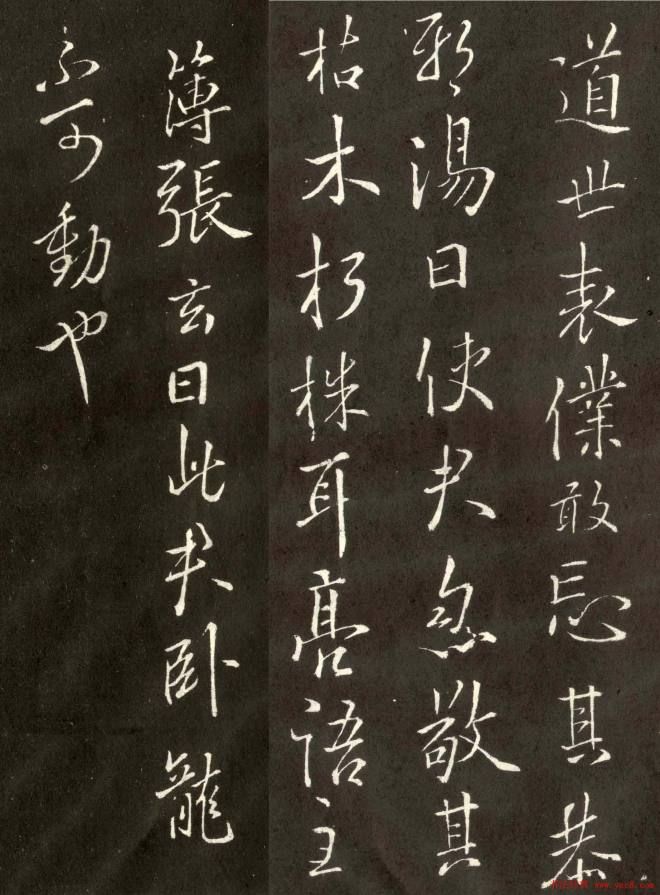 道世表僕敢忘其恭
邪湯曰使君直敬其
枯木朽株耳亮語主
簿張玄曰此君卧龍
不可動也